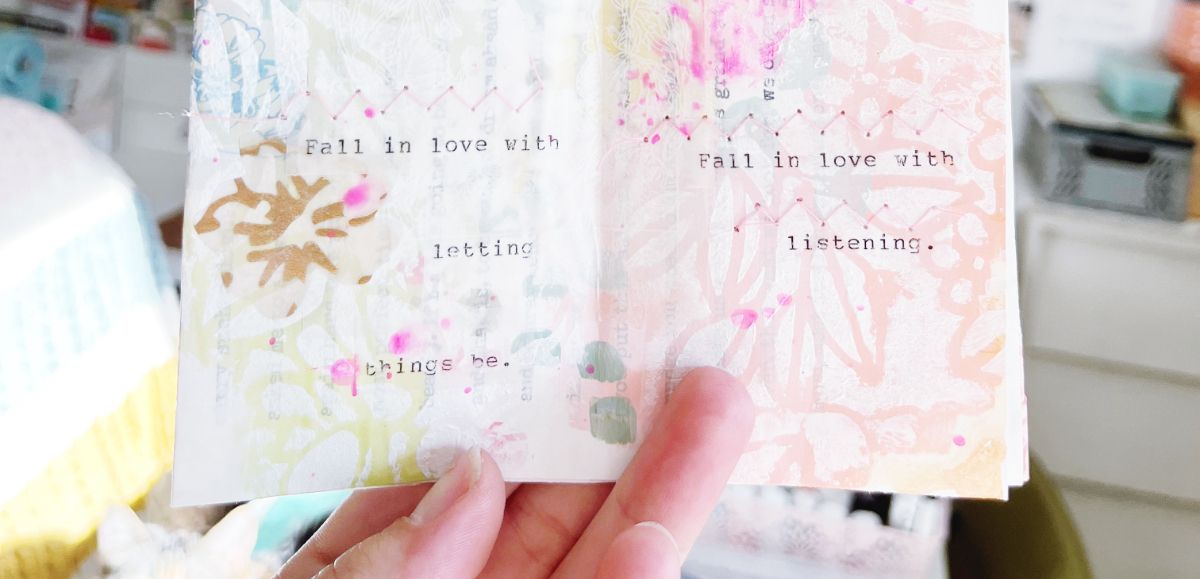 Fall in love with
letting
things be.
Fall in love with
listening.